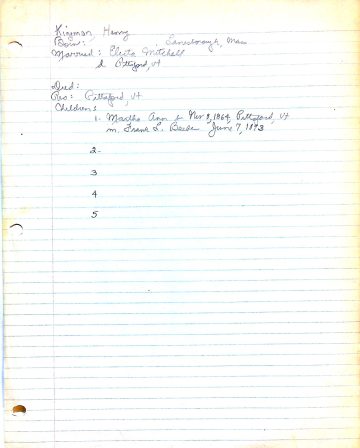 Kingman, Henry
Born: , Lanesborough, Mass
Married: Electa Mitchell
d. Pittsford, Vt
Died:
Res: Pittsford, Vt
Children:
1. Martha Ann b Nov 8, 1864, Pittsford, Vt
m. Frank L. Beebe June 7, 1893
2-
3
4
5